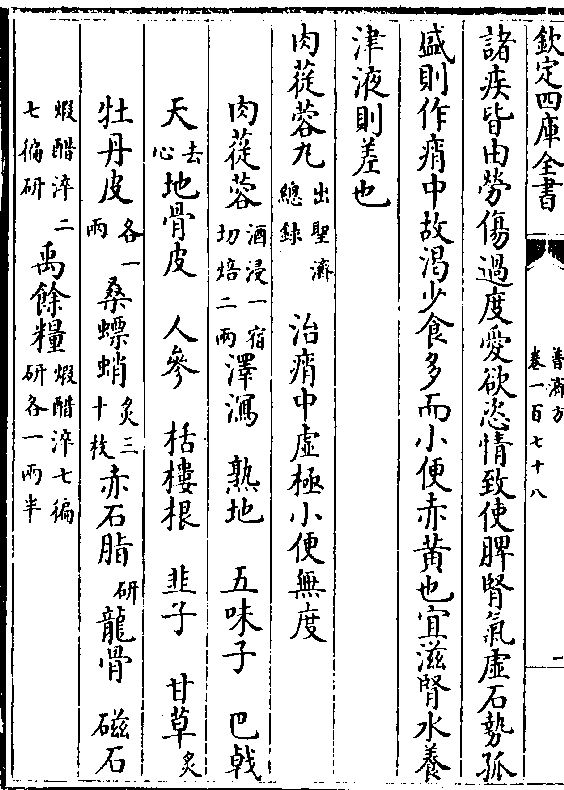 欽定四庫全書
普濟方
卷一百七十八
一
諸疾皆由勞傷過度愛欲恣情致使脾腎氣虛石勢孤
盛則作痟中故渴少食多而小便赤黃也宜滋腎水養
津液則差也
肉蓯蓉丸出聖濟總錄 治痟中虛極小便無度
肉蓯蓉酒浸一宿切焙二兩 澤瀉 熟地 五味子 巴戟
天去心 地骨皮 人參 栝樓根 韭子 甘草炙
牡丹皮各一兩 桑螵蛸炙三十枚 赤石脂研 龍骨 磁石
煆醋淬二七徧研 禹餘糧煆醋淬七徧研各一兩半